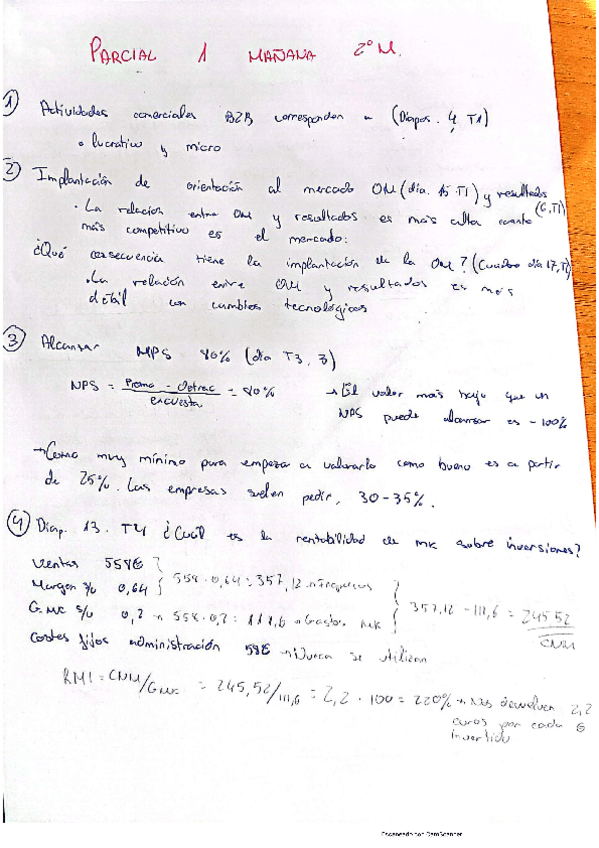 PARCIAL 1 MAÑANA 2º M.
1) Actividades comerciales B2B corresponden a (Diapos. 4, T1)
• lucrativo y micro
2) Implantación de orientación al mercado OM (dia. 15 T1) y resultados (6, T1)
• La relación entre OM y resultados es más alta cuanto
más competitivo es el mercado:
¿Qué consecuencia tiene la implantación de la OM? (Cuadro dia 17, T1)
• La relación entre OM y resultados es más
débil con cambios tecnológicos
3) Alcanzar NPS 80% (dia T3, 3)
NPS = Promo - Detrac / encuesta = 80% → El valor más bajo que un
NPS puede alcanzar es -100%
→ Como muy mínimo para empezar a valorarlo como bueno es a partir
de 25%. Las empresas suelen pedir, 30-35%.
4) Diap. 13. T4 ¿Cuál es la rentabilidad de mk sobre inversiones?
Ventas 558€
Margen s/v 0,64 } 558 · 0,64 = 357,12 → Ingresos
G. MK s/v 0,2 → 558 · 0,2 = 111,6 → Gastos MK } 357,12 - 111,6 = 245,52
CNM
Costes fijos administración 58€ → Nunca se utilizan
RMI = CNM/GMK = 245,52/111,6 = 2,2 · 100 = 220% → Nos devuelven 2,2
euros por cada €
invertido
Escaneado con CamScanner